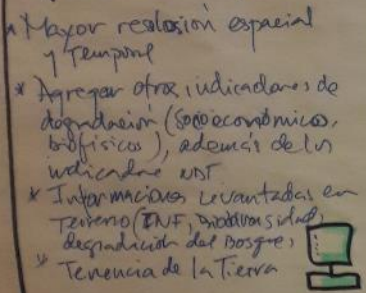 * Mayor resolosión espacial
y Temporal
* Agregar otros indicadores de
degradación (socioeconómicos,
biofísicos), además de los
indicadores NDT
* Informaciones levantadas en
Terreno (INF, Biodiversidad,
degradación del Bosque,
* Tenencia de la Tierra